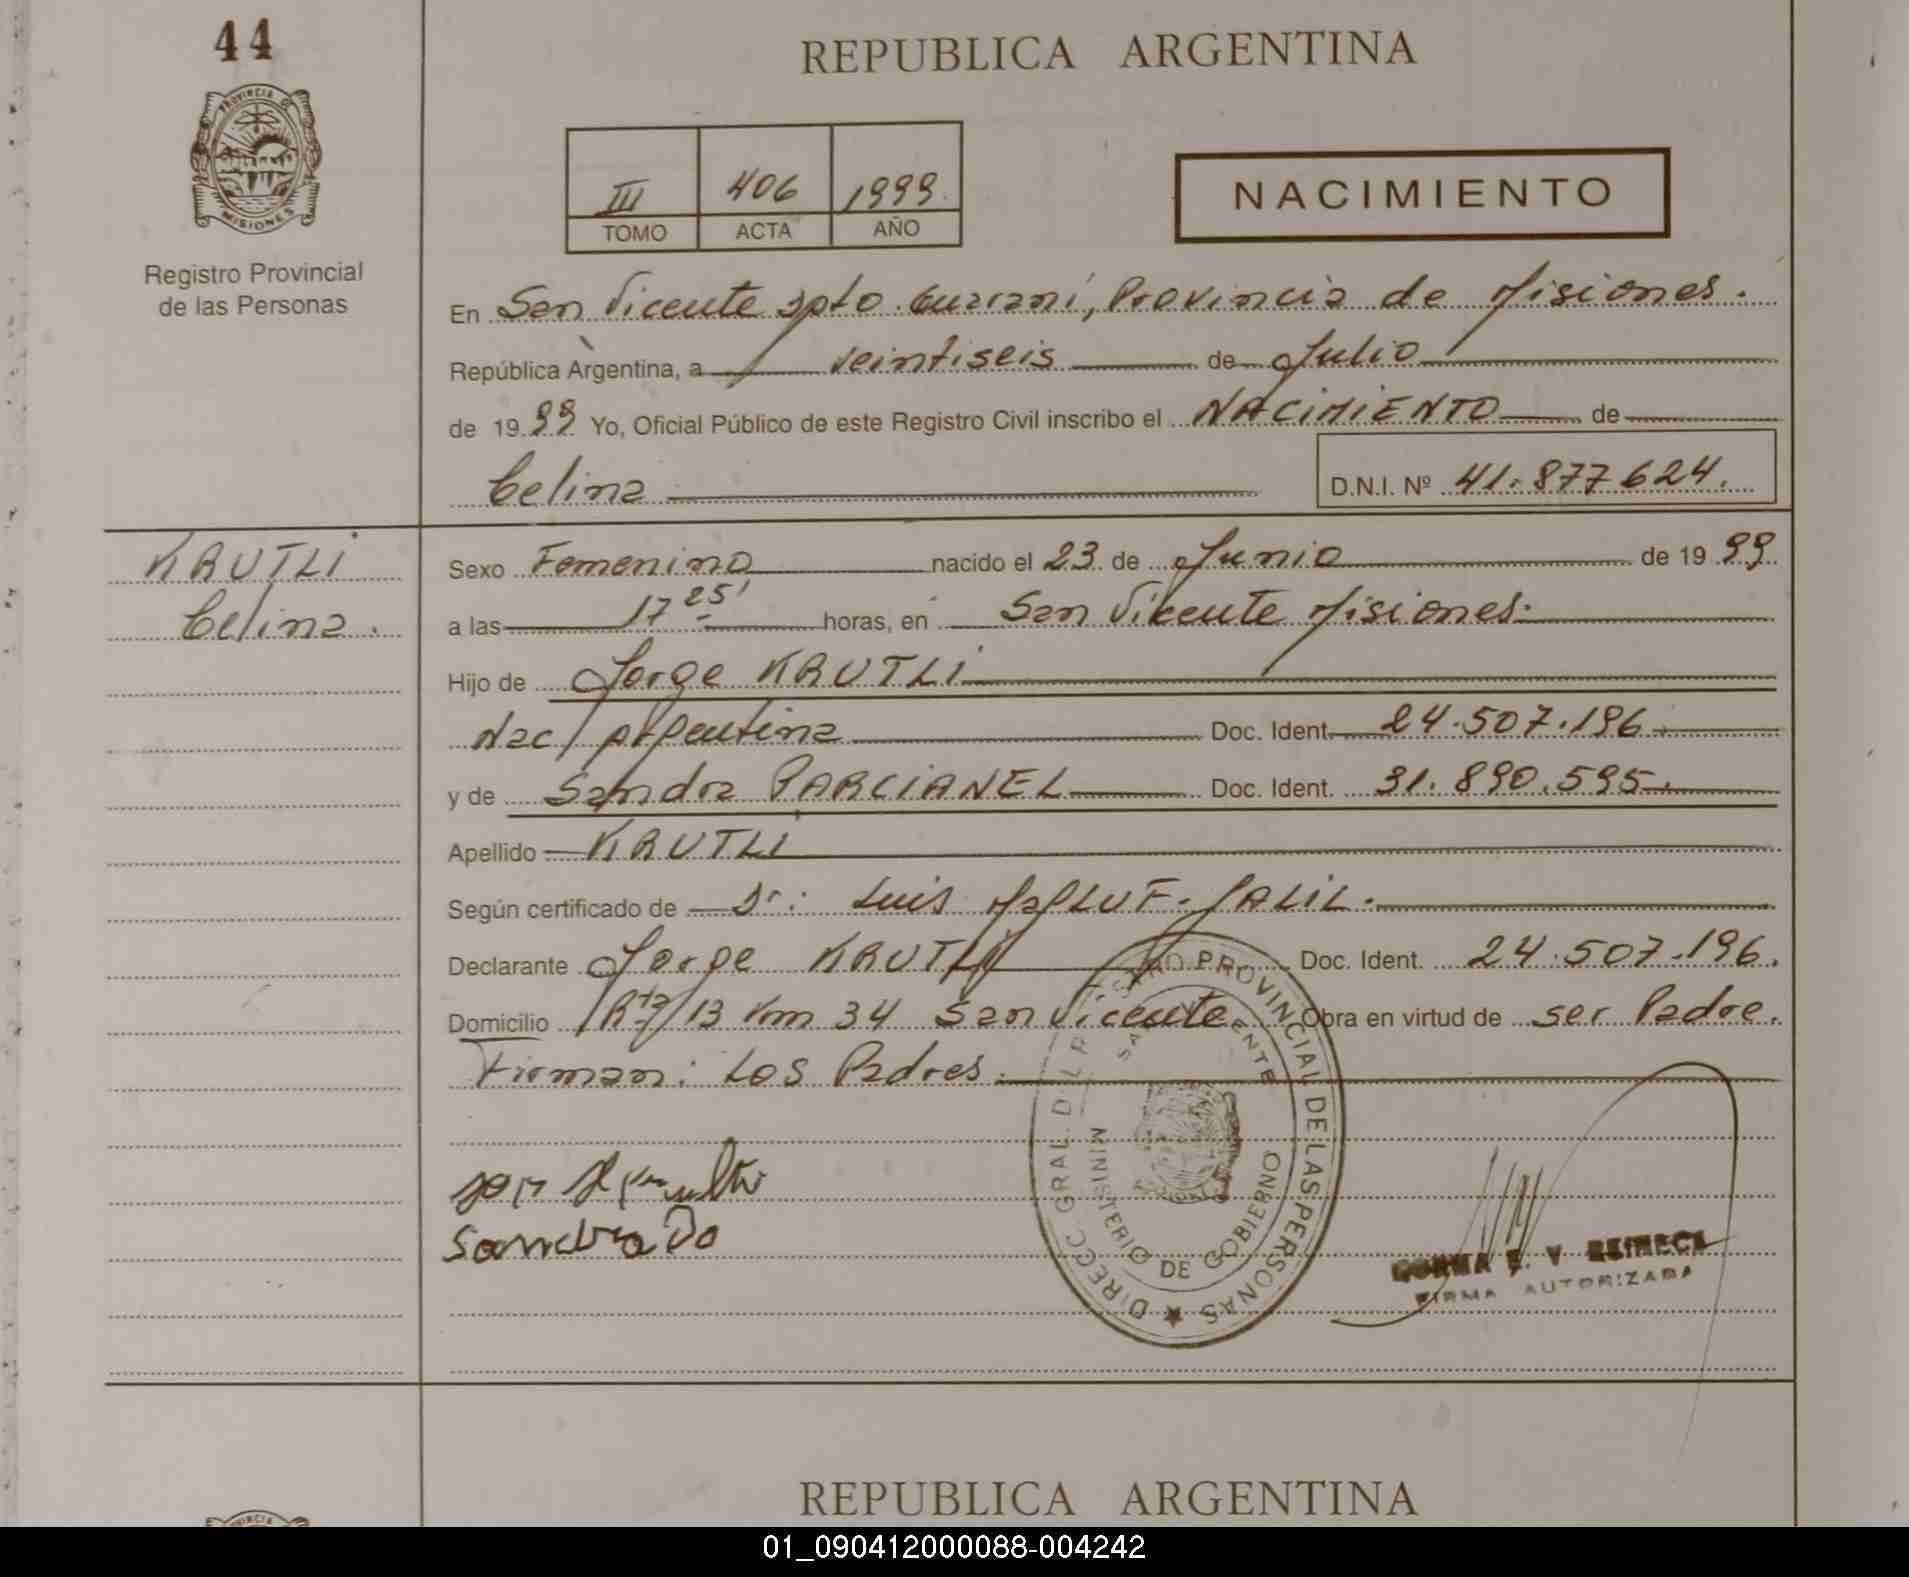 44
REPUBLICA ARGENTINA
PROVINCIA DE
MISIONES
III 406 1999
TOMO ACTA AÑO
NACIMIENTO
Registro Provincial
de las Personas
En San Vicente Dpto. Guaraní, Provincia de Misiones.
República Argentina, a veintiseis de Julio
de 1999 Yo, Oficial Público de este Registro Civil inscribo el NACIMIENTO de
Celina D.N.I. Nº 41.877624.
KRUTLI
Celina.
Sexo Femenino nacido el 23 de Junio de 1999
a las 17 25' horas, en San Vicente Misiones.
Hijo de Jorge KRUTLI
Nac/ Argentina Doc. Ident. 24.507.196
y de Sandra PARCIANEL Doc. Ident. 31.890.595.
Apellido KRUTLI
Según certificado de Dr: Luis MaLLUF. JALIL.
Declarante Jorge KRUTLI Doc. Ident. 24.507.196.
Domicilio Rta/13 Km 34 San Vicente Obra en virtud de ser Padre.
Firman: Los Padres.
DIRECC GRAL. DEL REGISTRO PROVINCIAL DE LAS PERSONAS
SAN VICENTE
MINISTERIO DE GOBIERNO
Sandra
NORMA E. V.
FIRMA AUTORIZADA
REPUBLICA ARGENTINA
01_090412000088-004242